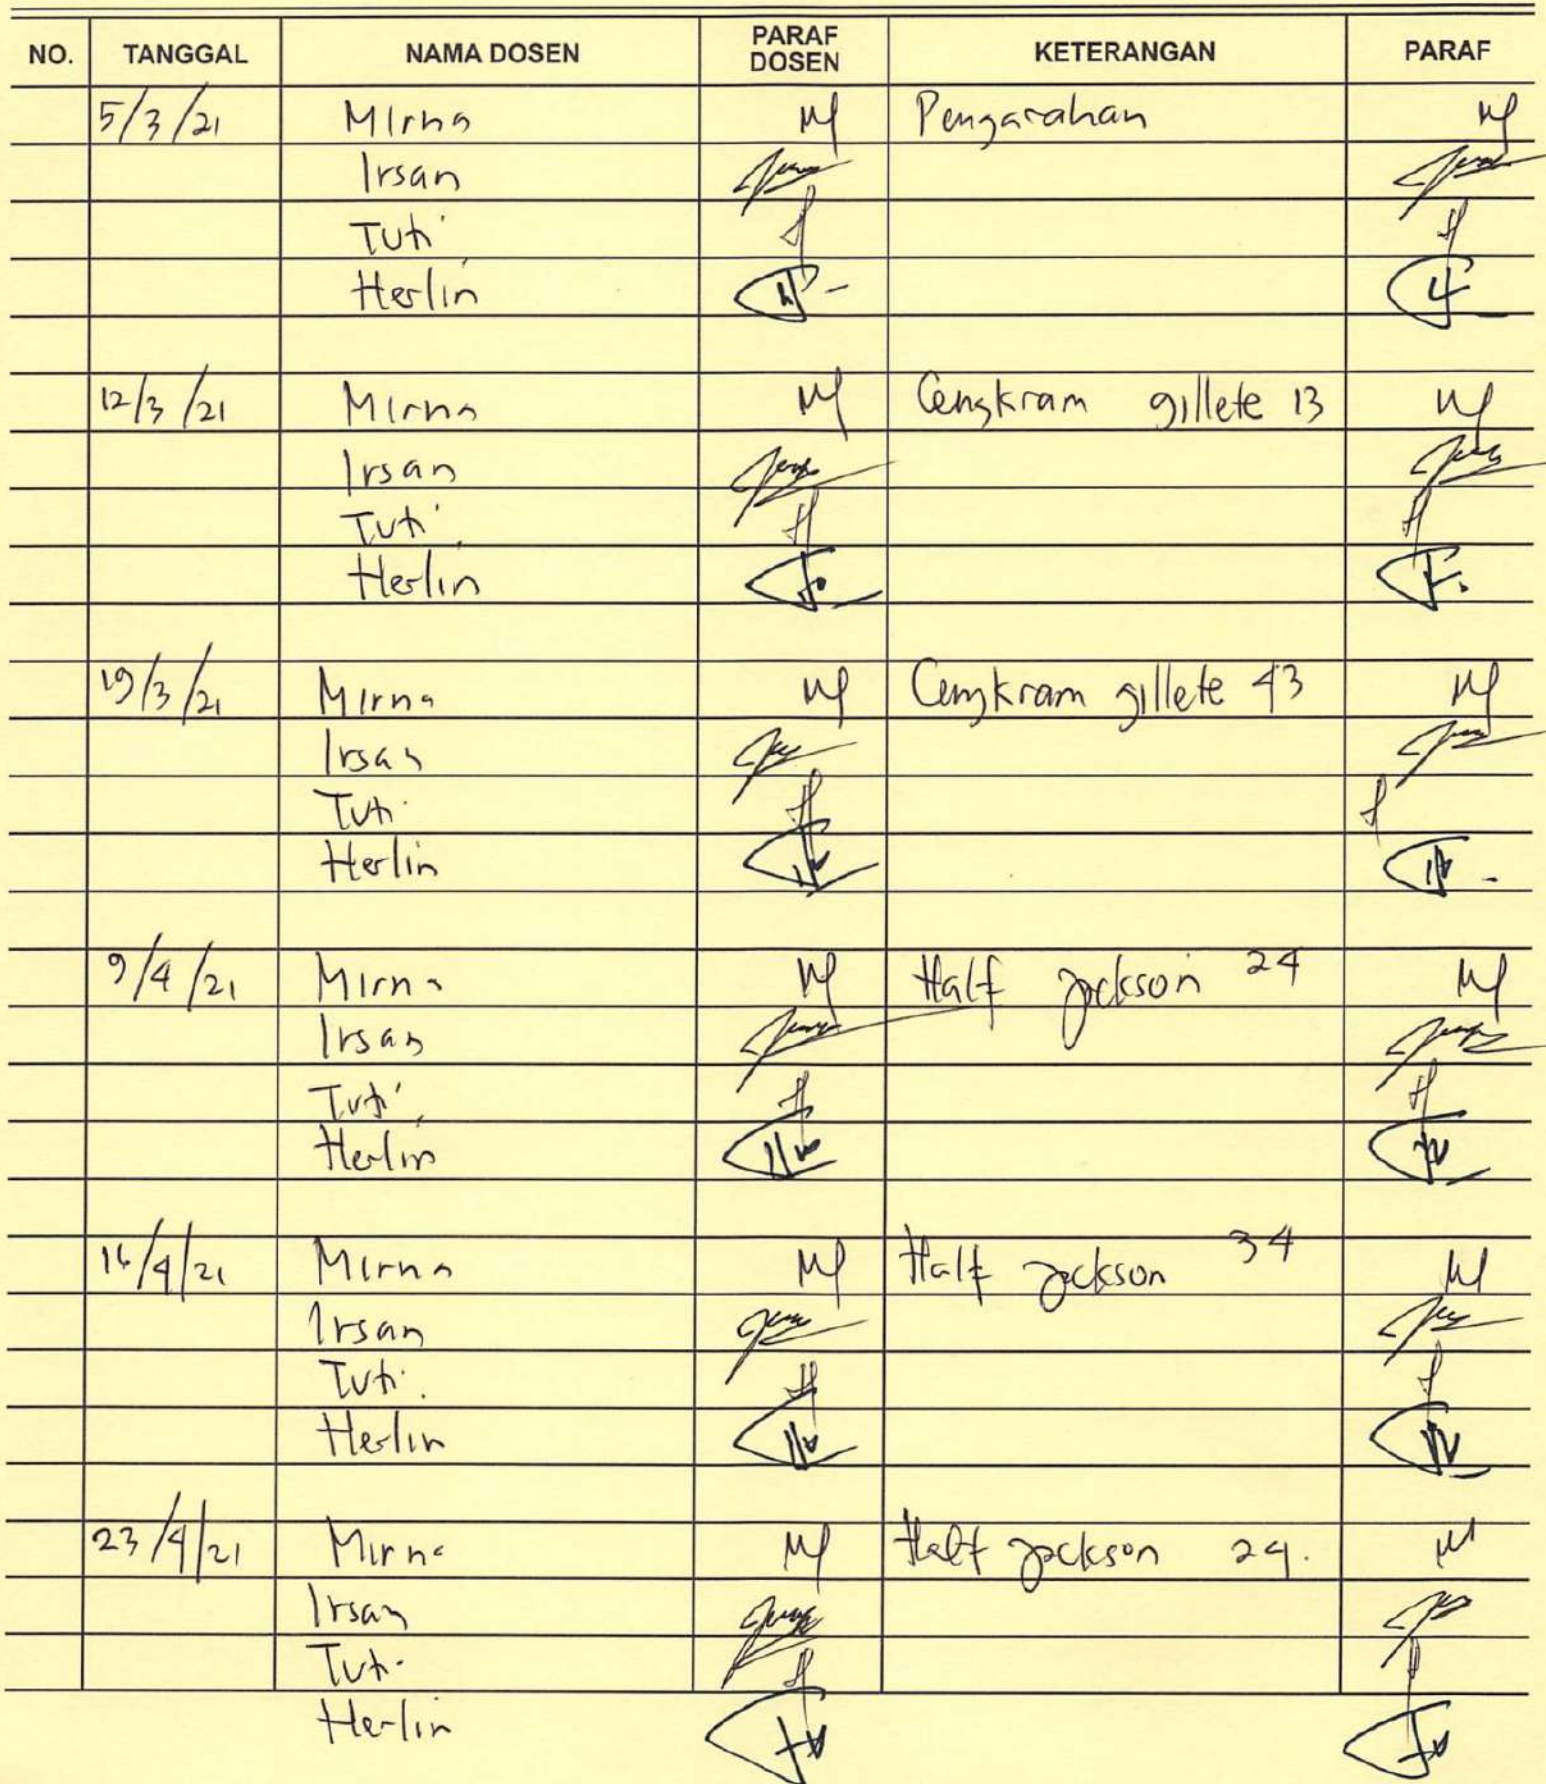 NO. TANGGAL NAMA DOSEN PARAF DOSEN KETERANGAN PARAF
5/3/21 Mirna Pengarahan
Irsan
Tuti
Herlin
12/3/21 Mirna Cengkram gillete 13
Irsan
Tuti
Herlin
19/3/21 Mirna Cengkram gillete 43
Irsan
Tuti
Herlin
9/4/21 Mirna Half jackson 24
Irsan
Tuti
Herlin
16/4/21 Mirna Half jackson 34
Irsan
Tuti
Herlin
23/4/21 Mirna Half jackson 24.
Irsan
Tuti
Herlin